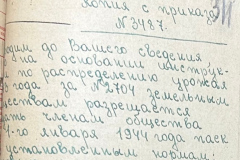 Копия с приказа
№3487.
одим до Вашего сведения
на основании инструк-
по распределению урожая
года за №2704 земельным
ществам разрешается
ать членам общества
1-го января 1944 года паек
установленным нормам: